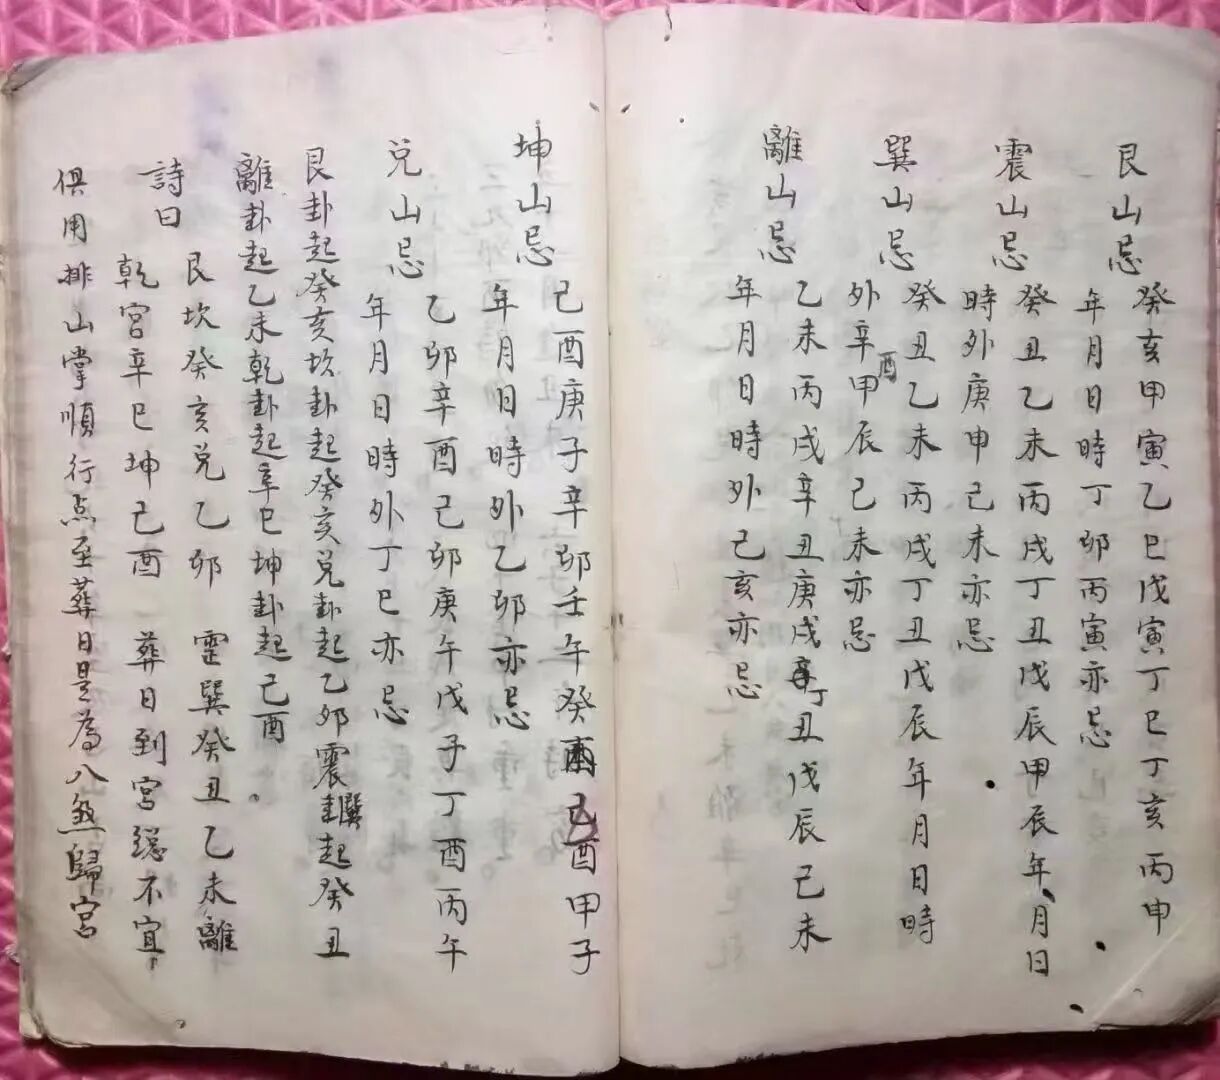 艮山忌
癸亥甲寅乙巳戊寅丁巳丁亥丙申
年月日時丁卯丙寅亦忌
震山忌
癸丑乙未丙戌丁丑戊辰甲辰年月日
時外庚申己未亦忌
巽山忌
癸丑乙未丙戌丁丑戊辰年月日時
外辛酉甲辰己未亦忌
離山忌
乙未丙戌辛丑庚戌丁丑戊辰己未
年月日時外己亥亦忌
坤山忌
己酉庚子辛卯壬午癸酉己酉甲子
年月日時外乙卯亦忌
兑山忌
乙卯辛酉己卯庚午戊子丁酉丙午
年月日時外丁巳亦忌
艮卦起癸亥坎卦起癸亥兑卦起乙卯震巽卦起癸丑
離卦起乙未乾卦起辛巳坤卦起己酉。
詩曰
艮坎癸亥兑乙卯 震巽癸丑乙未離
乾宮辛巳坤己酉 葬日到宮總不宜
俱用排山掌順行点至葬日是為八煞歸宮